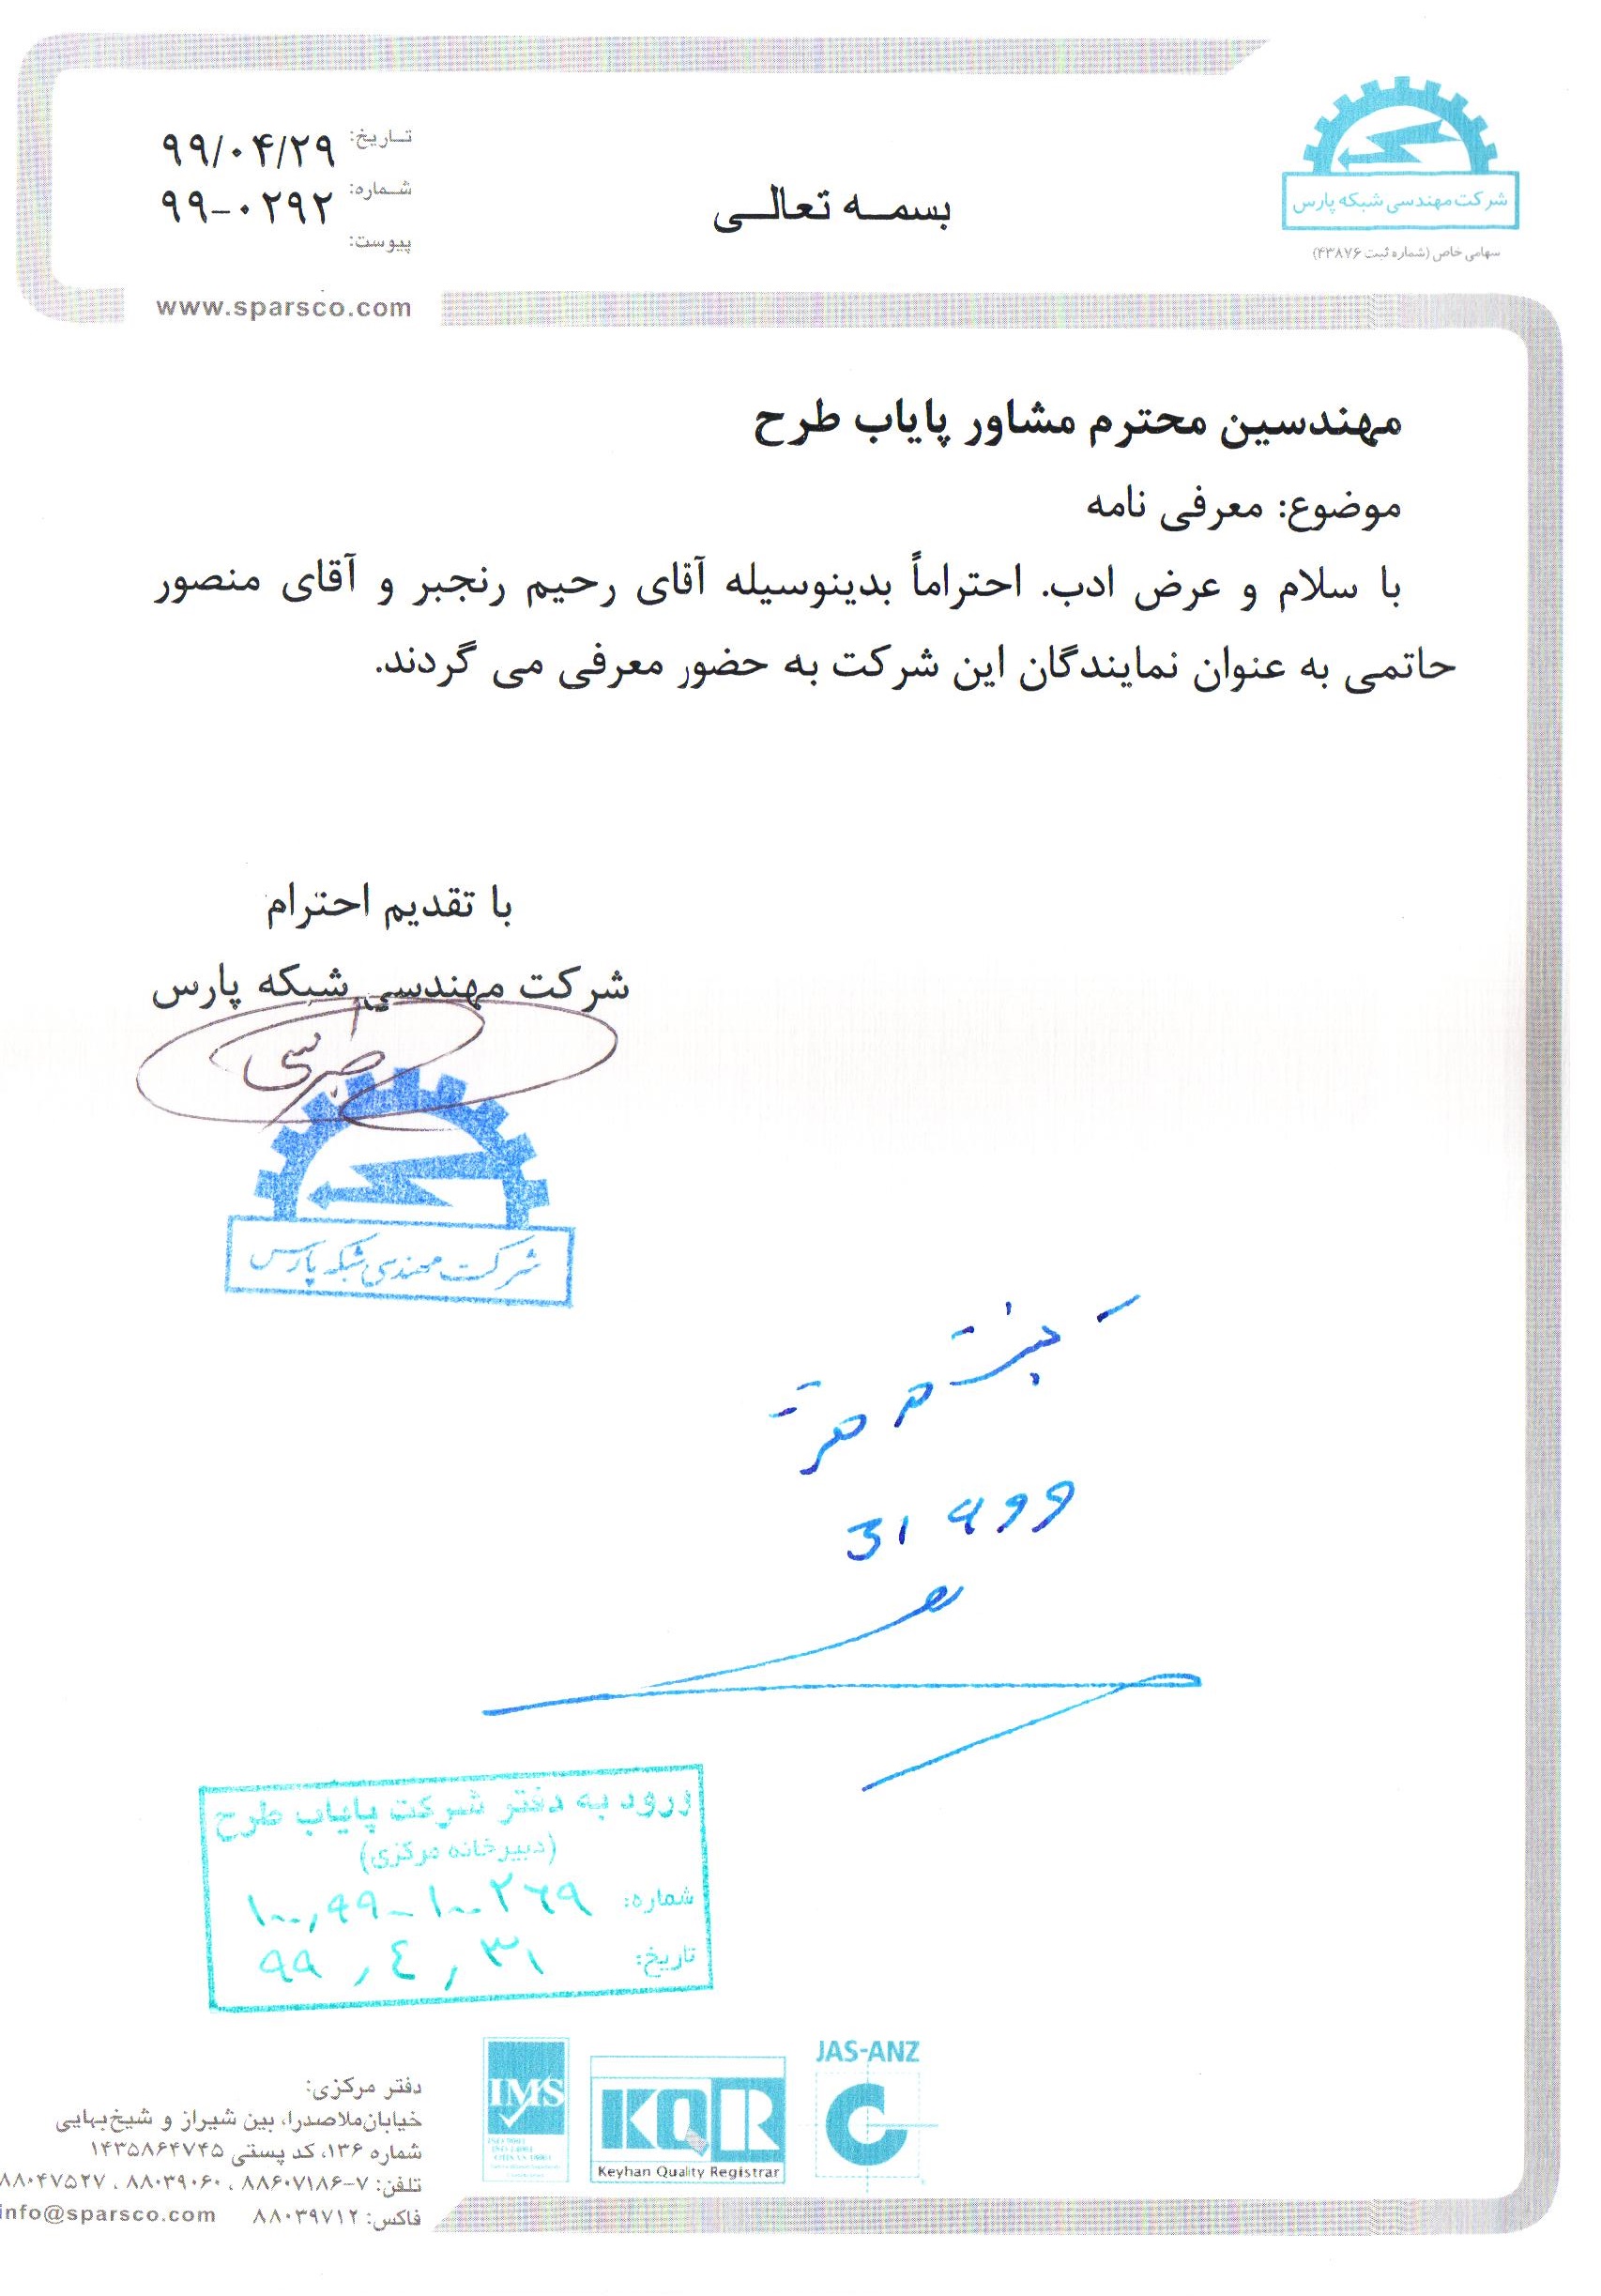 بسمه تعالی
تاریخ: ۹۹/۰۴/۲۹
شماره: ۹۹-۰۲۹۲
پیوست:
www.sparsco.com
شرکت مهندسی شبکه پارس
سهامی خاص (شماره ثبت ۴۳۸۷۶)
مهندسین محترم مشاور پایاب طرح
موضوع: معرفی نامه
با سلام و عرض ادب. احتراماً بدینوسیله آقای رحیم رنجبر و آقای منصور
حاتمی به عنوان نمایندگان این شرکت به حضور معرفی می گردند.
با تقدیم احترام
شرکت مهندسی شبکه پارس
شرکت مهندسی شبکه پارس
ورود به دفتر شرکت پایاب طرح
(دبیرخانه مرکزی)
شماره: ۱۰۰,۹۹-۱۰۰۲۶۹
تاریخ: ۹۹,۴,۳۱
JAS-ANZ
IMS
KQR
Keyhan Quality Registrar
دفتر مرکزی:
خیابان ملاصدرا، بین شیراز و شیخ بهایی
شماره ۱۳۶، کد پستی ۱۴۳۵۸۶۴۷۴۵
تلفن: ۷-۸۸۶۰۷۱۸۶ ، ۸۸۰۳۹۰۶۰ ، ۸۸۰۴۷۵۲۷
فاکس: ۸۸۰۳۹۷۱۲ info@sparsco.com